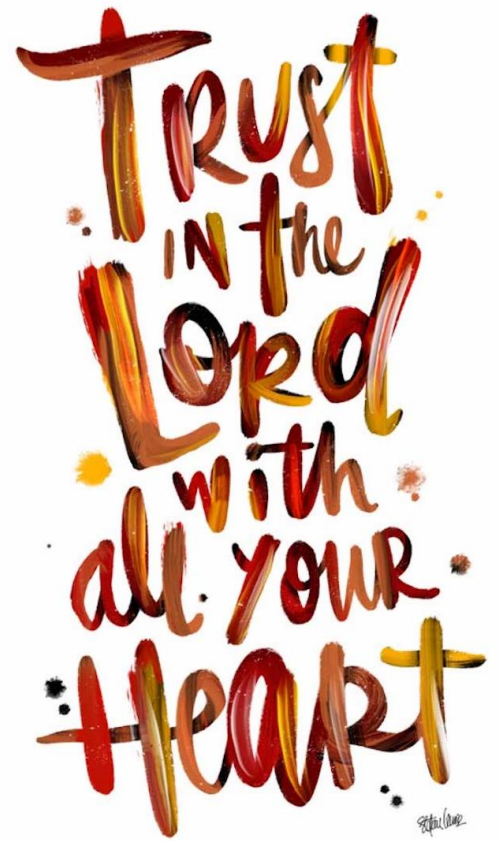 Trust
in the
Lord
with
all your
Heart